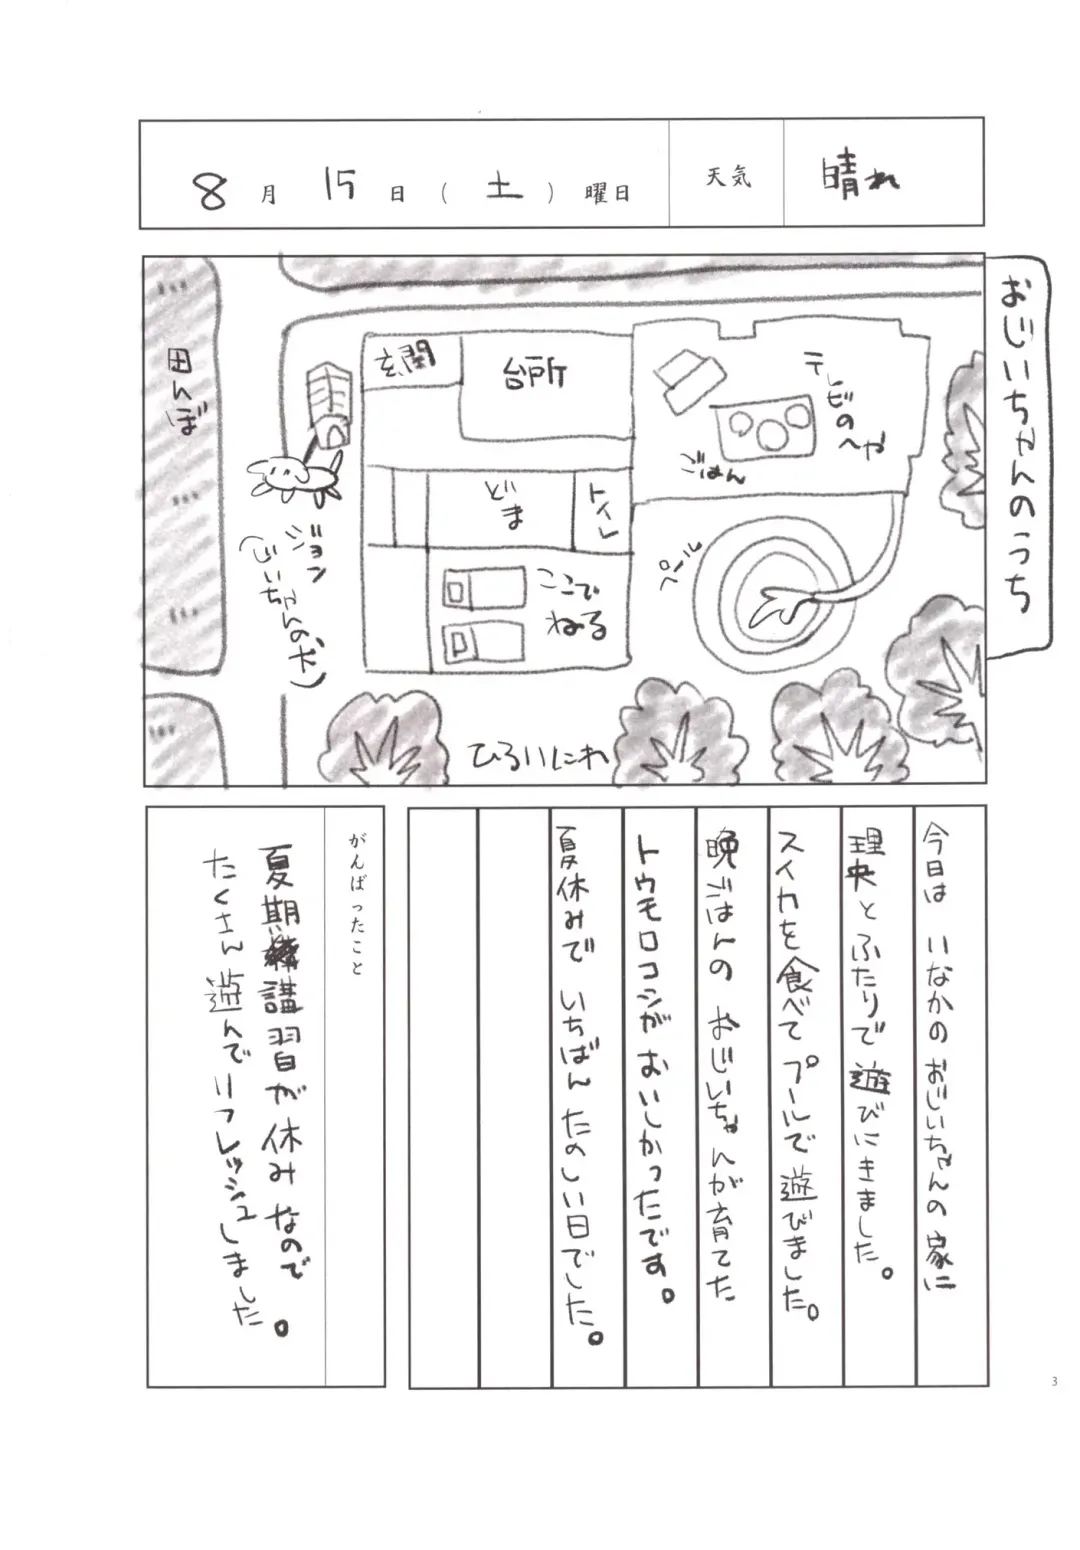 8月15日(土)曜日
天気
晴れ
おじいちゃんのうち
田んぼ
玄関
台所
テレビのへや
ごはん
どま
トイレ
プール
ジョン
(じいちゃんの犬)
ここで
ねる
ひろいにわ
今日は いなかの おじいちゃんの 家に
理央と ふたりで 遊びにきました。
スイカを食べて プールで 遊びました。
晩ごはんの おじいちゃんが育てた
トウモロコシが おいしかったです。
夏休みで いちばん たのしい日でした。
がんばったこと
夏期講習が休みなので
たくさん遊んでリフレッシュしました。
3